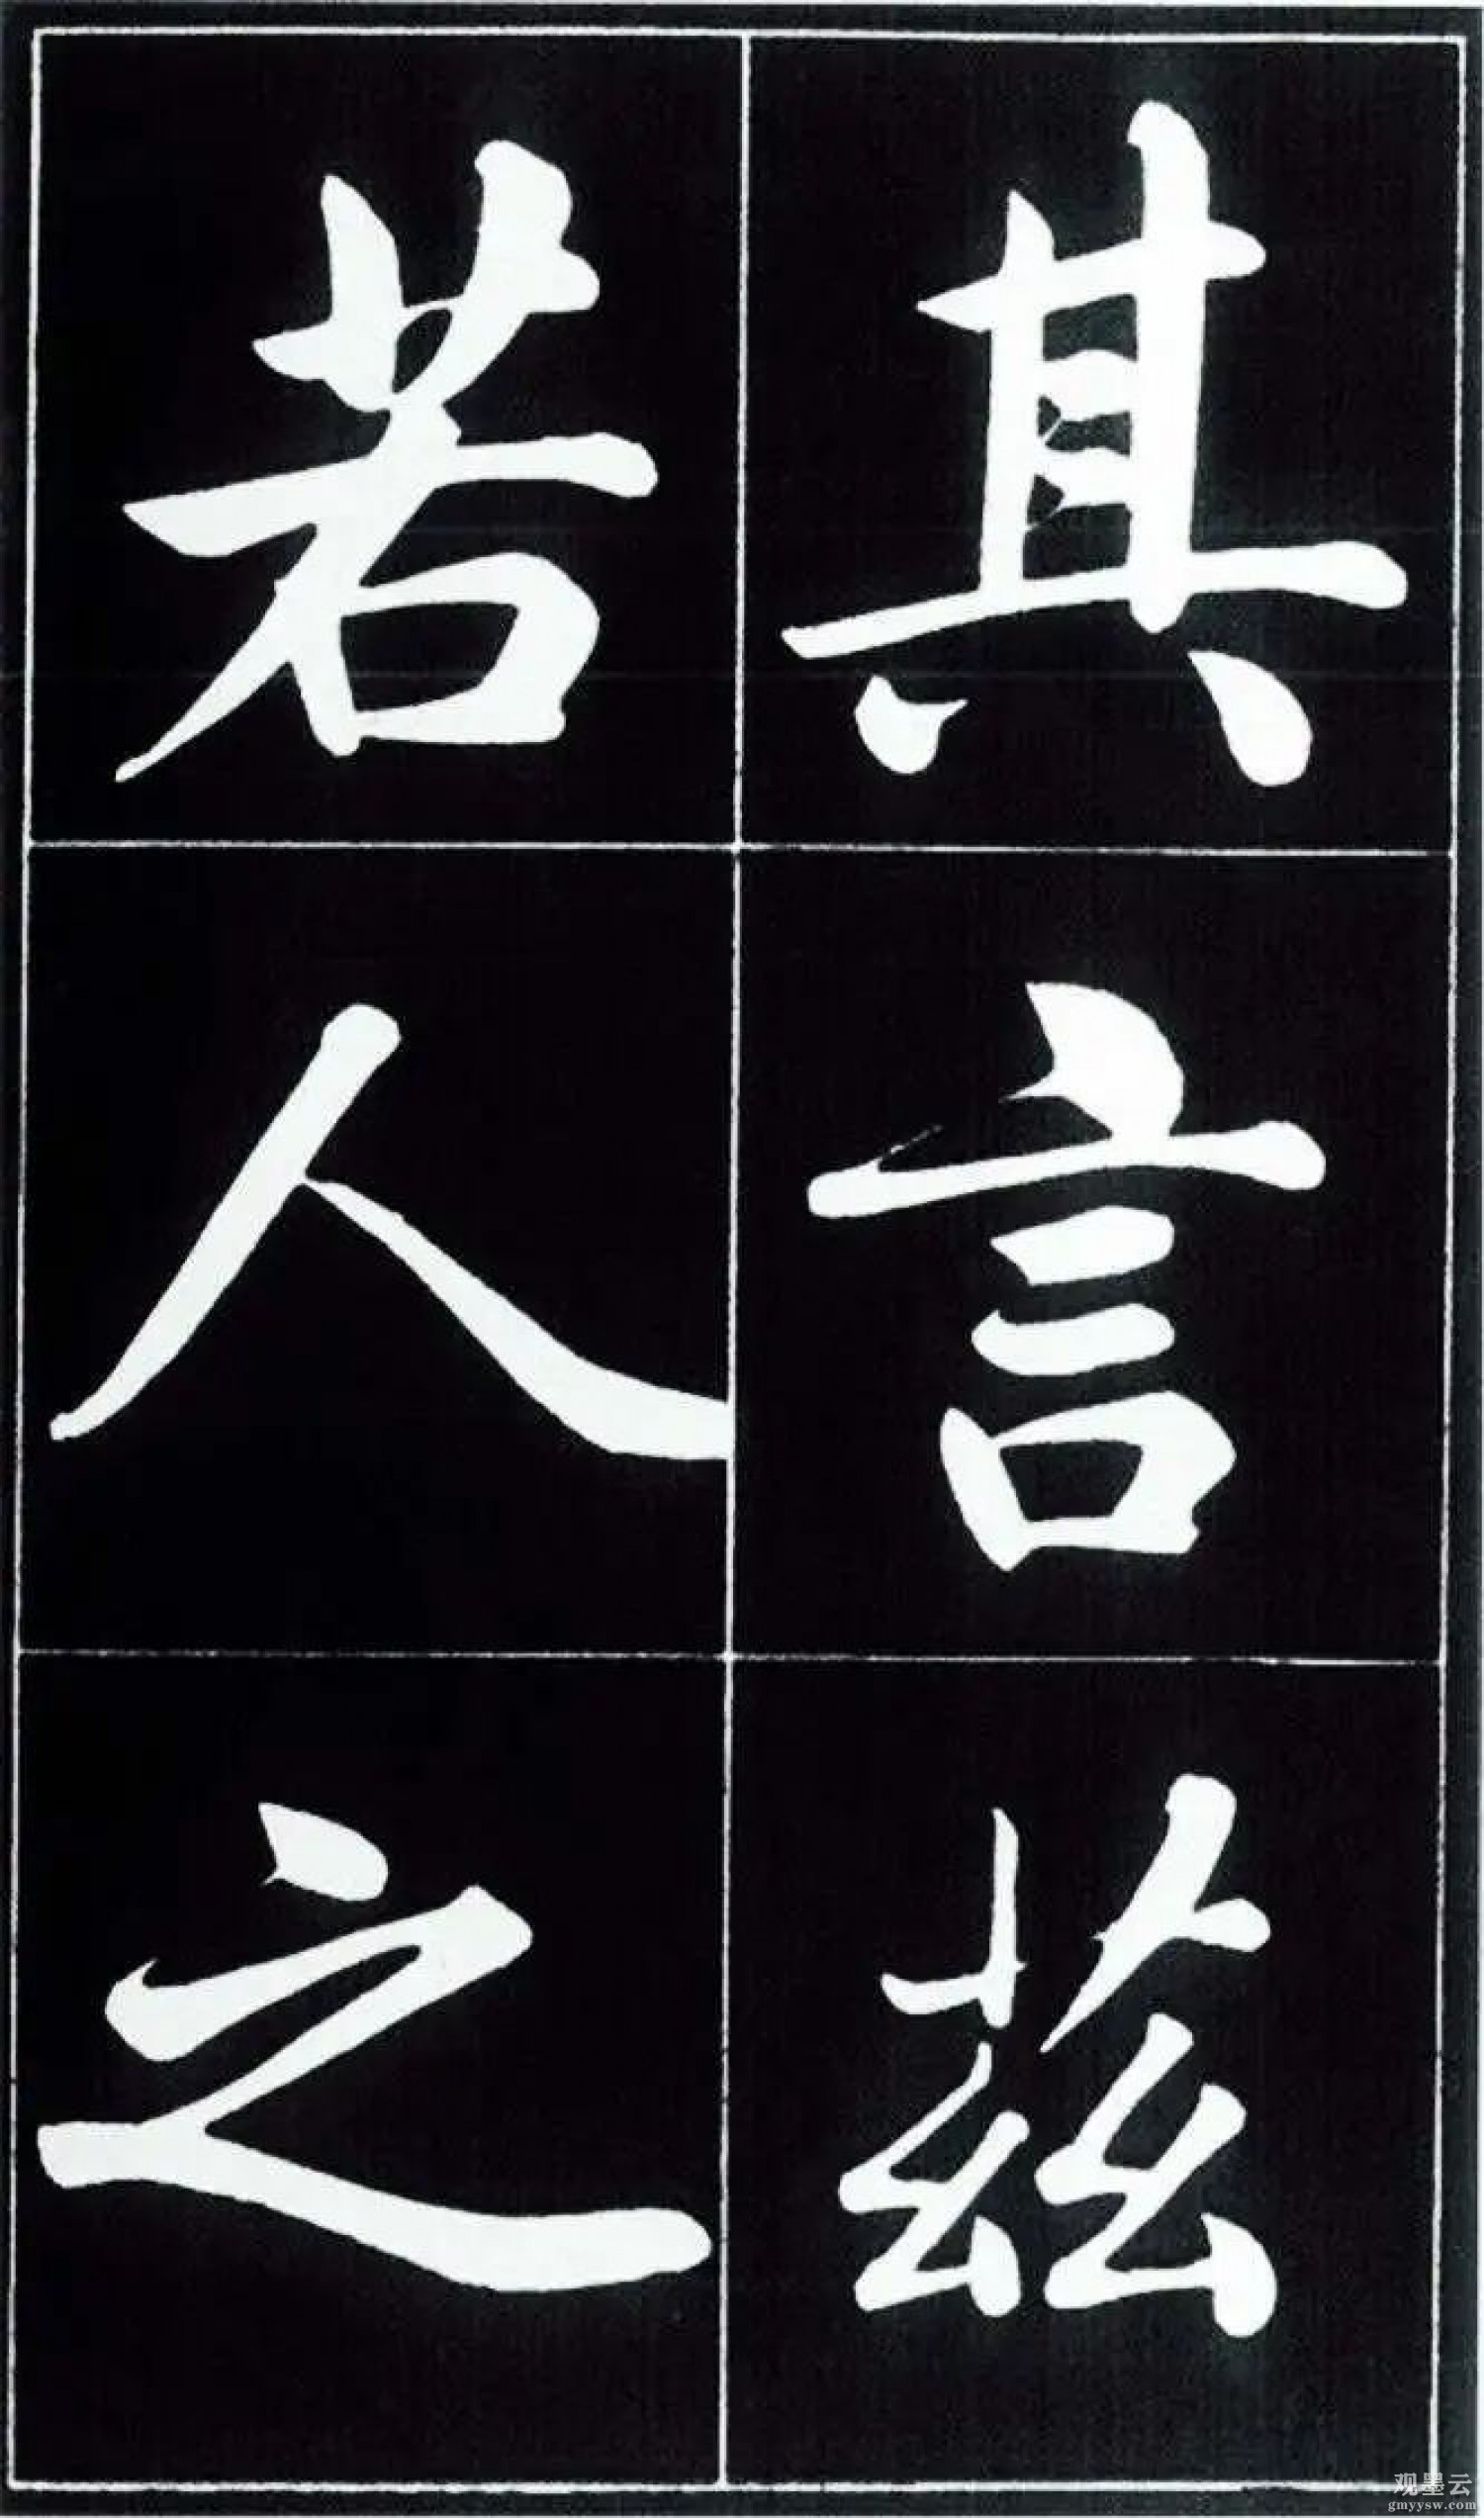 其言兹
若人之
观墨云
gmyysw.com